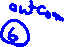 outcom
6